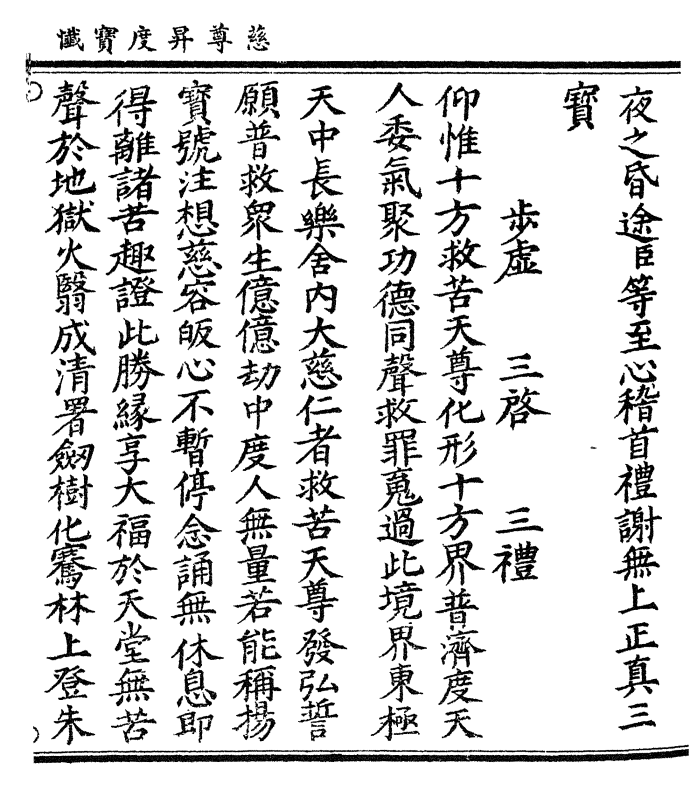 慈尊昇度寶懺
夜之昏途臣等至心稽首禮謝無上正真三
寶
步虛 三啓 三禮
仰惟十方救苦天尊化形十方界普濟度天
人委氣聚功德同聲救罪䰟過此境界東極
天中長樂舍內大慈仁者救苦天尊發弘誓
願普救衆生億億劫中度人無量若能稱揚
寶號注想慈容皈心不暫停念誦無休息即
得離諸苦趣證此勝緣享大福於天堂無苦
聲於地獄火翳成清署劒樹化騫林上登朱